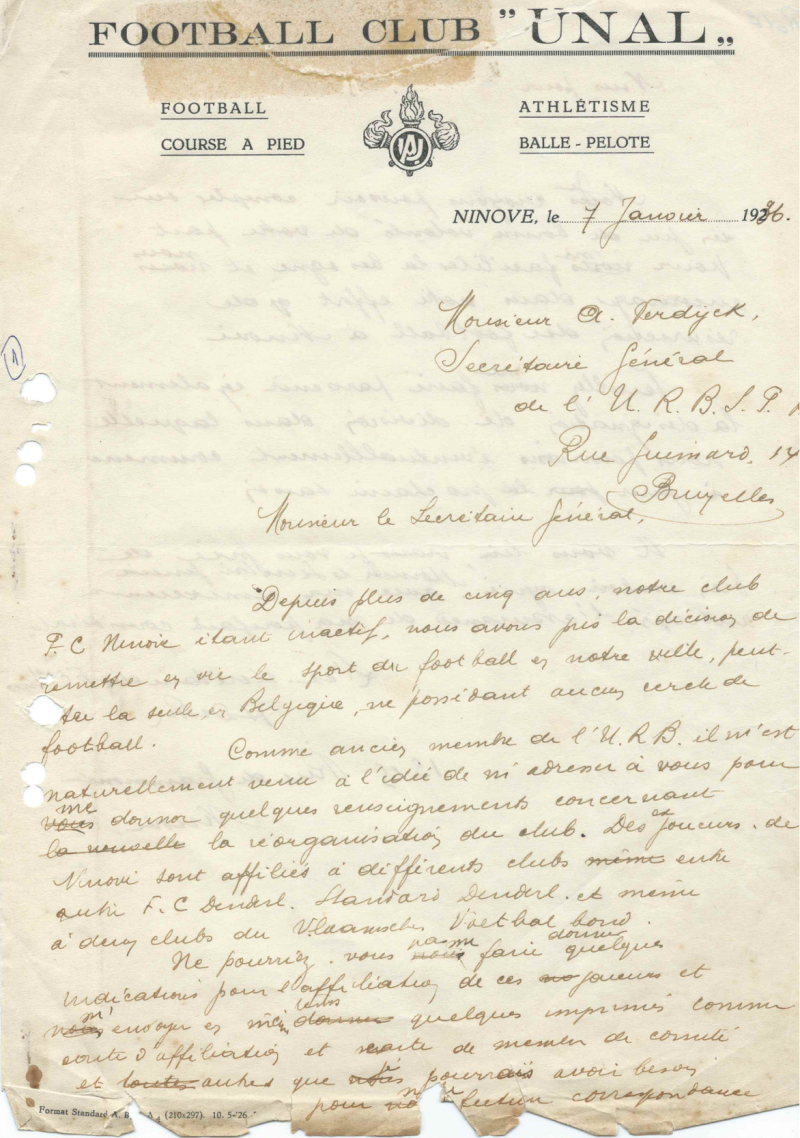 FOOTBALL CLUB "UNAL„
FOOTBALL
COURSE A PIED
ATHLÉTISME
BALLE - PELOTE
NINOVE, le 7 Janvier 1936.
1
Monsieur A. Verdyck,
Secrétaire Général
de l'U. R. B. S. F. A
Rue Guimard, 14
Bruxelles
Monsieur le Secrétaire Général,
Depuis plus de cinq ans, notre club
F.C Ninove étant inactif, nous avons pris la décision de
remettre en vie le sport du football en notre ville, peut-
être la seule en Belgique, ne possédant aucun cercle de
football.
Comme ancien membre de l'U.R.B. il m'est
naturellement venu à l'idée de m'adresser à vous pour
me
vous donner quelques renseignements concernant
la nouvelle la réorganisation du club. Des joueurs de
Ninove sont affiliés à différents clubs même entre
autre F.C Denderl. Standard Denderl. et même
à deux clubs du Vlaamsche Voetbal bond.
Ne pourriez-vous pas me faire donner quelques
indications pour l'affiliation de ces joueurs et
m'envoyer quelques imprimés comme
carte d'affiliation et carte de membre de comité
et toutes autres que pourrais avoir besoin
pour future correspondance
Format Standard A. B. A4 (210x297). 10. 5-'26